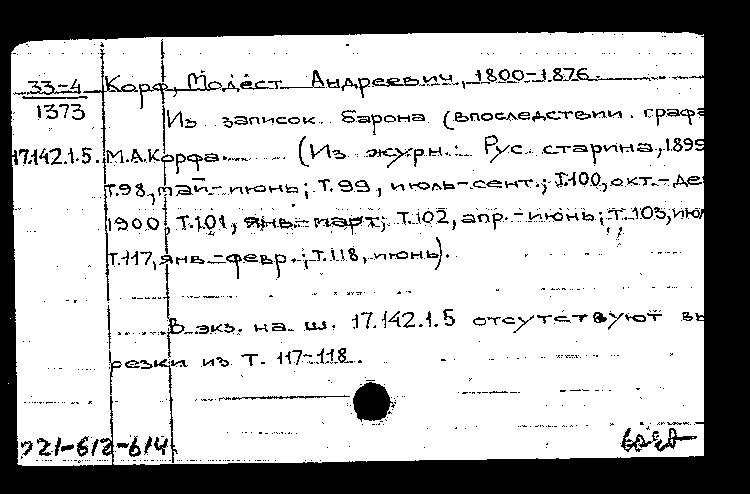 33-4 Корф, Модест Андреевич, 1800-1876.
1373
Из записок барона (впоследствии графа
17.142.1.5. М.А.Корфа. (Из журн.: Рус. старина, 1899
Т.98, май-июнь; Т.99, июль-сент.; Т.100, окт.-де
1900, Т.101, янв.-март; Т.102, апр.-июнь; Т.103, ию
Т.117, янв.-февр.; Т.118, июнь).
В экз. на ш. 17.142.1.5 отсутствуют вы
резки из Т. 117-118.
21-612-614